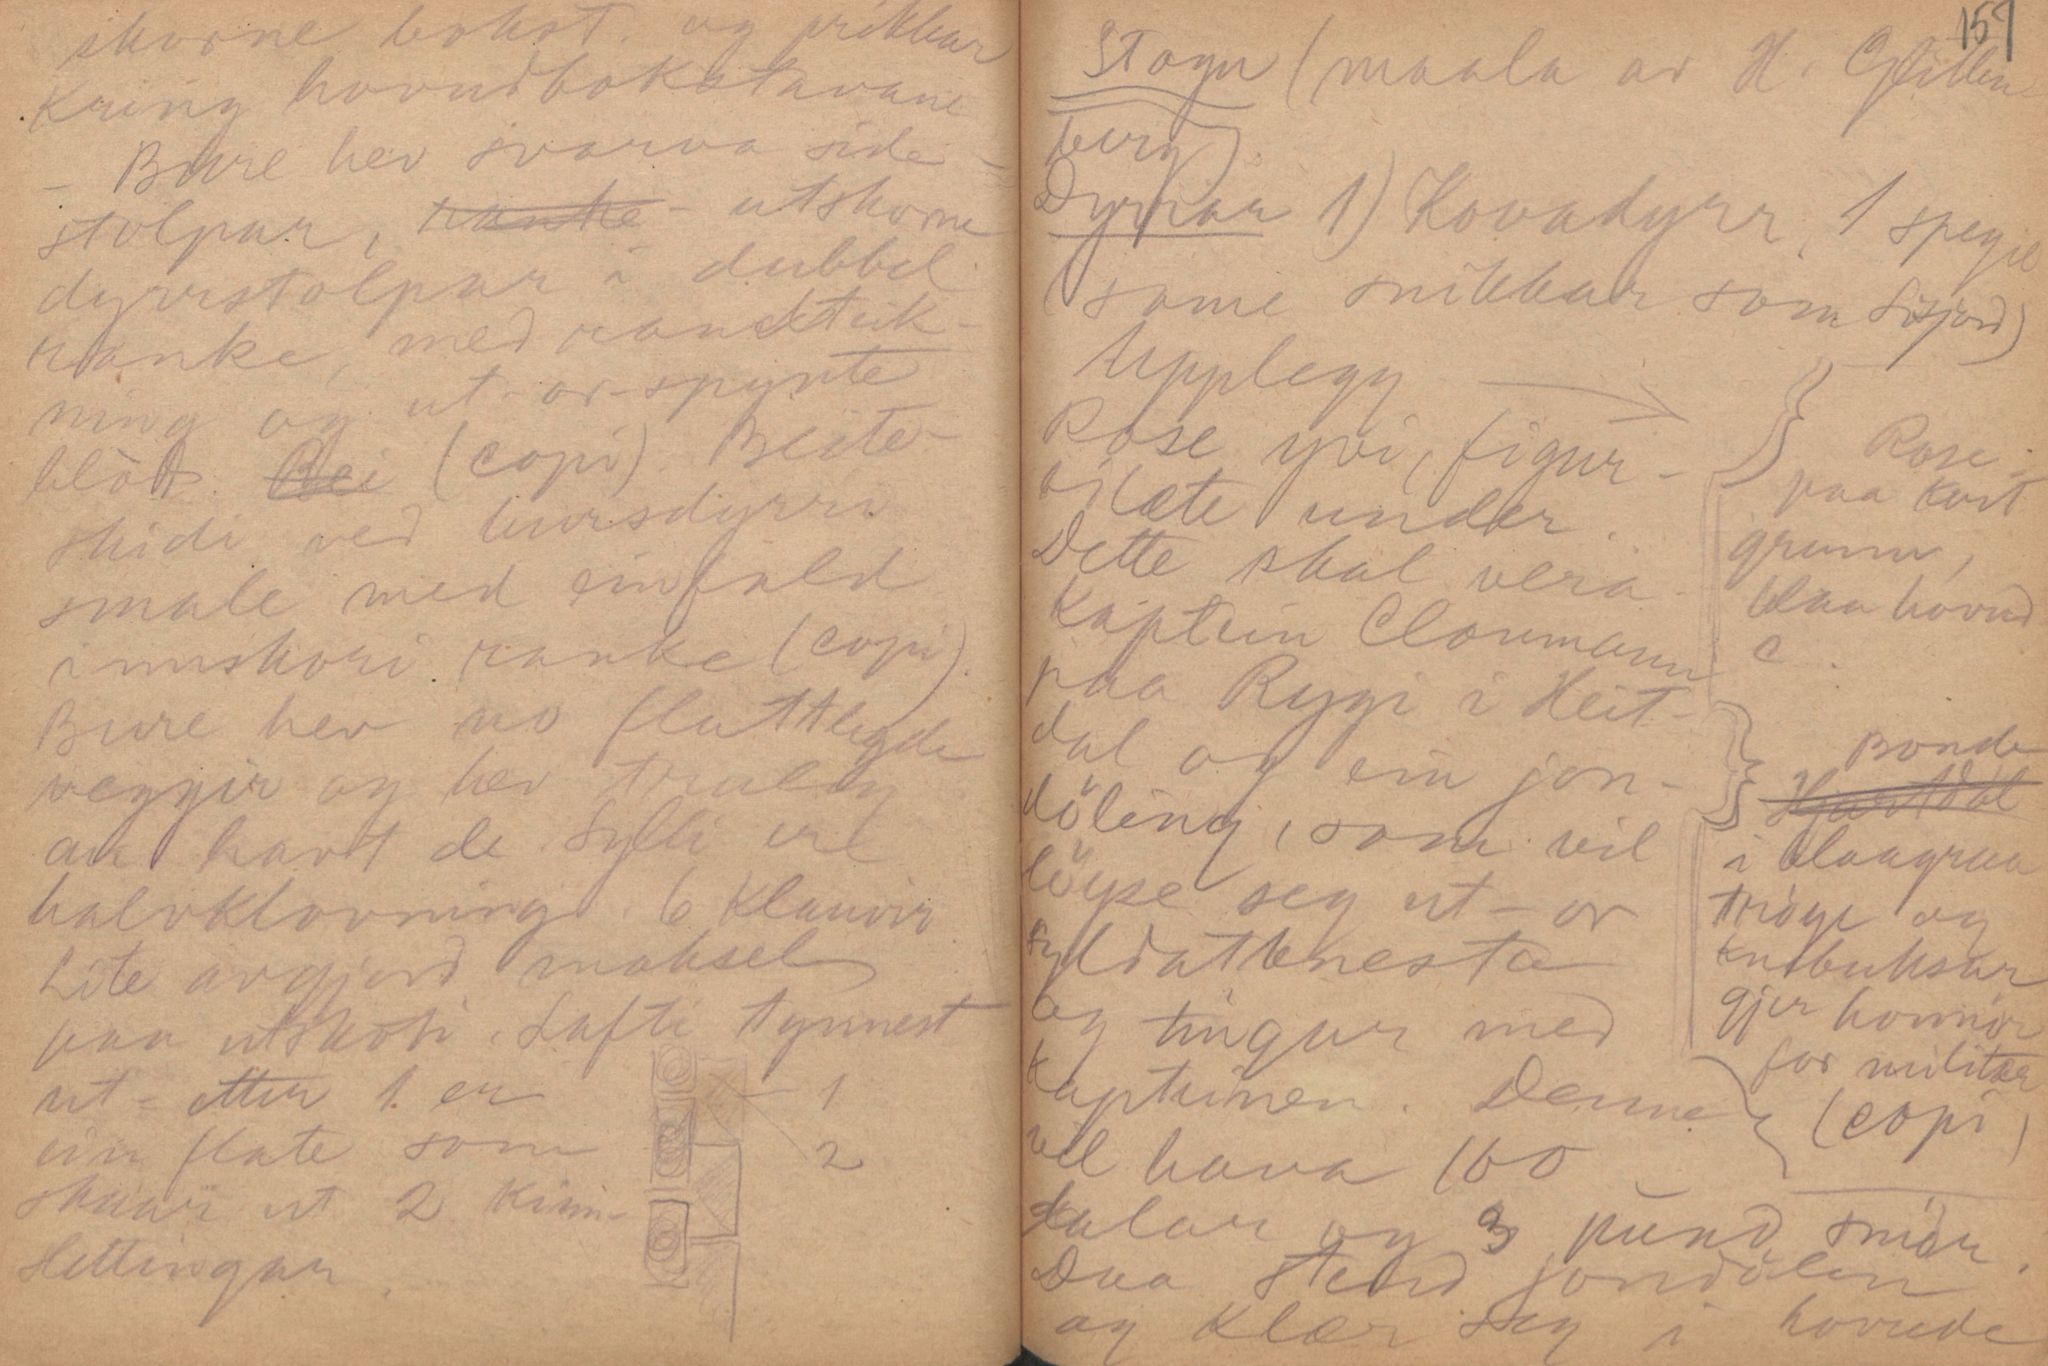 skorne bokst. og prikkar
kring hovudbokstavane
- Bure hev svarva side-
stolpar, ranke- utskorne
dyrrstolpar i dubbel
ranke, med randstrik-
ning og ut-or-spynte
blöd. Bei (copi). Beite-
skidi ved bursdyrri
smale med einfald
innskori ranke (copi).
Bure hev no fluttlegde
veggir og hev truleg
an havt de Sylli erl
halvklovning. 6 klauvir
Lite avgjord maksel
paa utskoti. Lafti tynnest
ut-etter 1. er
ein flate som
skaar ut 2 kinn-
slettingar.
1
2
159
Stogu (maala av H. Glitten-
berg).
Dyrrar 1) Kovadyrr, 1 spegil
(same snikkar som Sisjord)
Upplegg
Rose yvi, figur-
bilæte under.
Dette skal vera
Kaptein Cloumann
paa Rygi i Heit-
dal og ein jon-
döling, som vil
löyse seg ut-or
syldattenesta
og tingar med
kapteinen. Denne
vil hava 100
dalar og 3 pund smör.
Daa stend jondölen
og klær seg i hovude
Rose
paa kvit
grunn,
blaa hovud
c.
Bonde
Hjartdöl
i blaagraa
tröye og
knebuksur
gjer honnör
for militær
(copi)